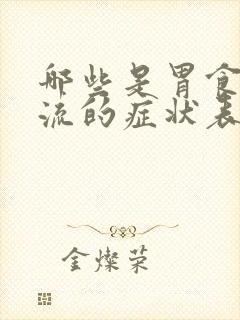 哪些是胃食
流的症状表
金燦荣